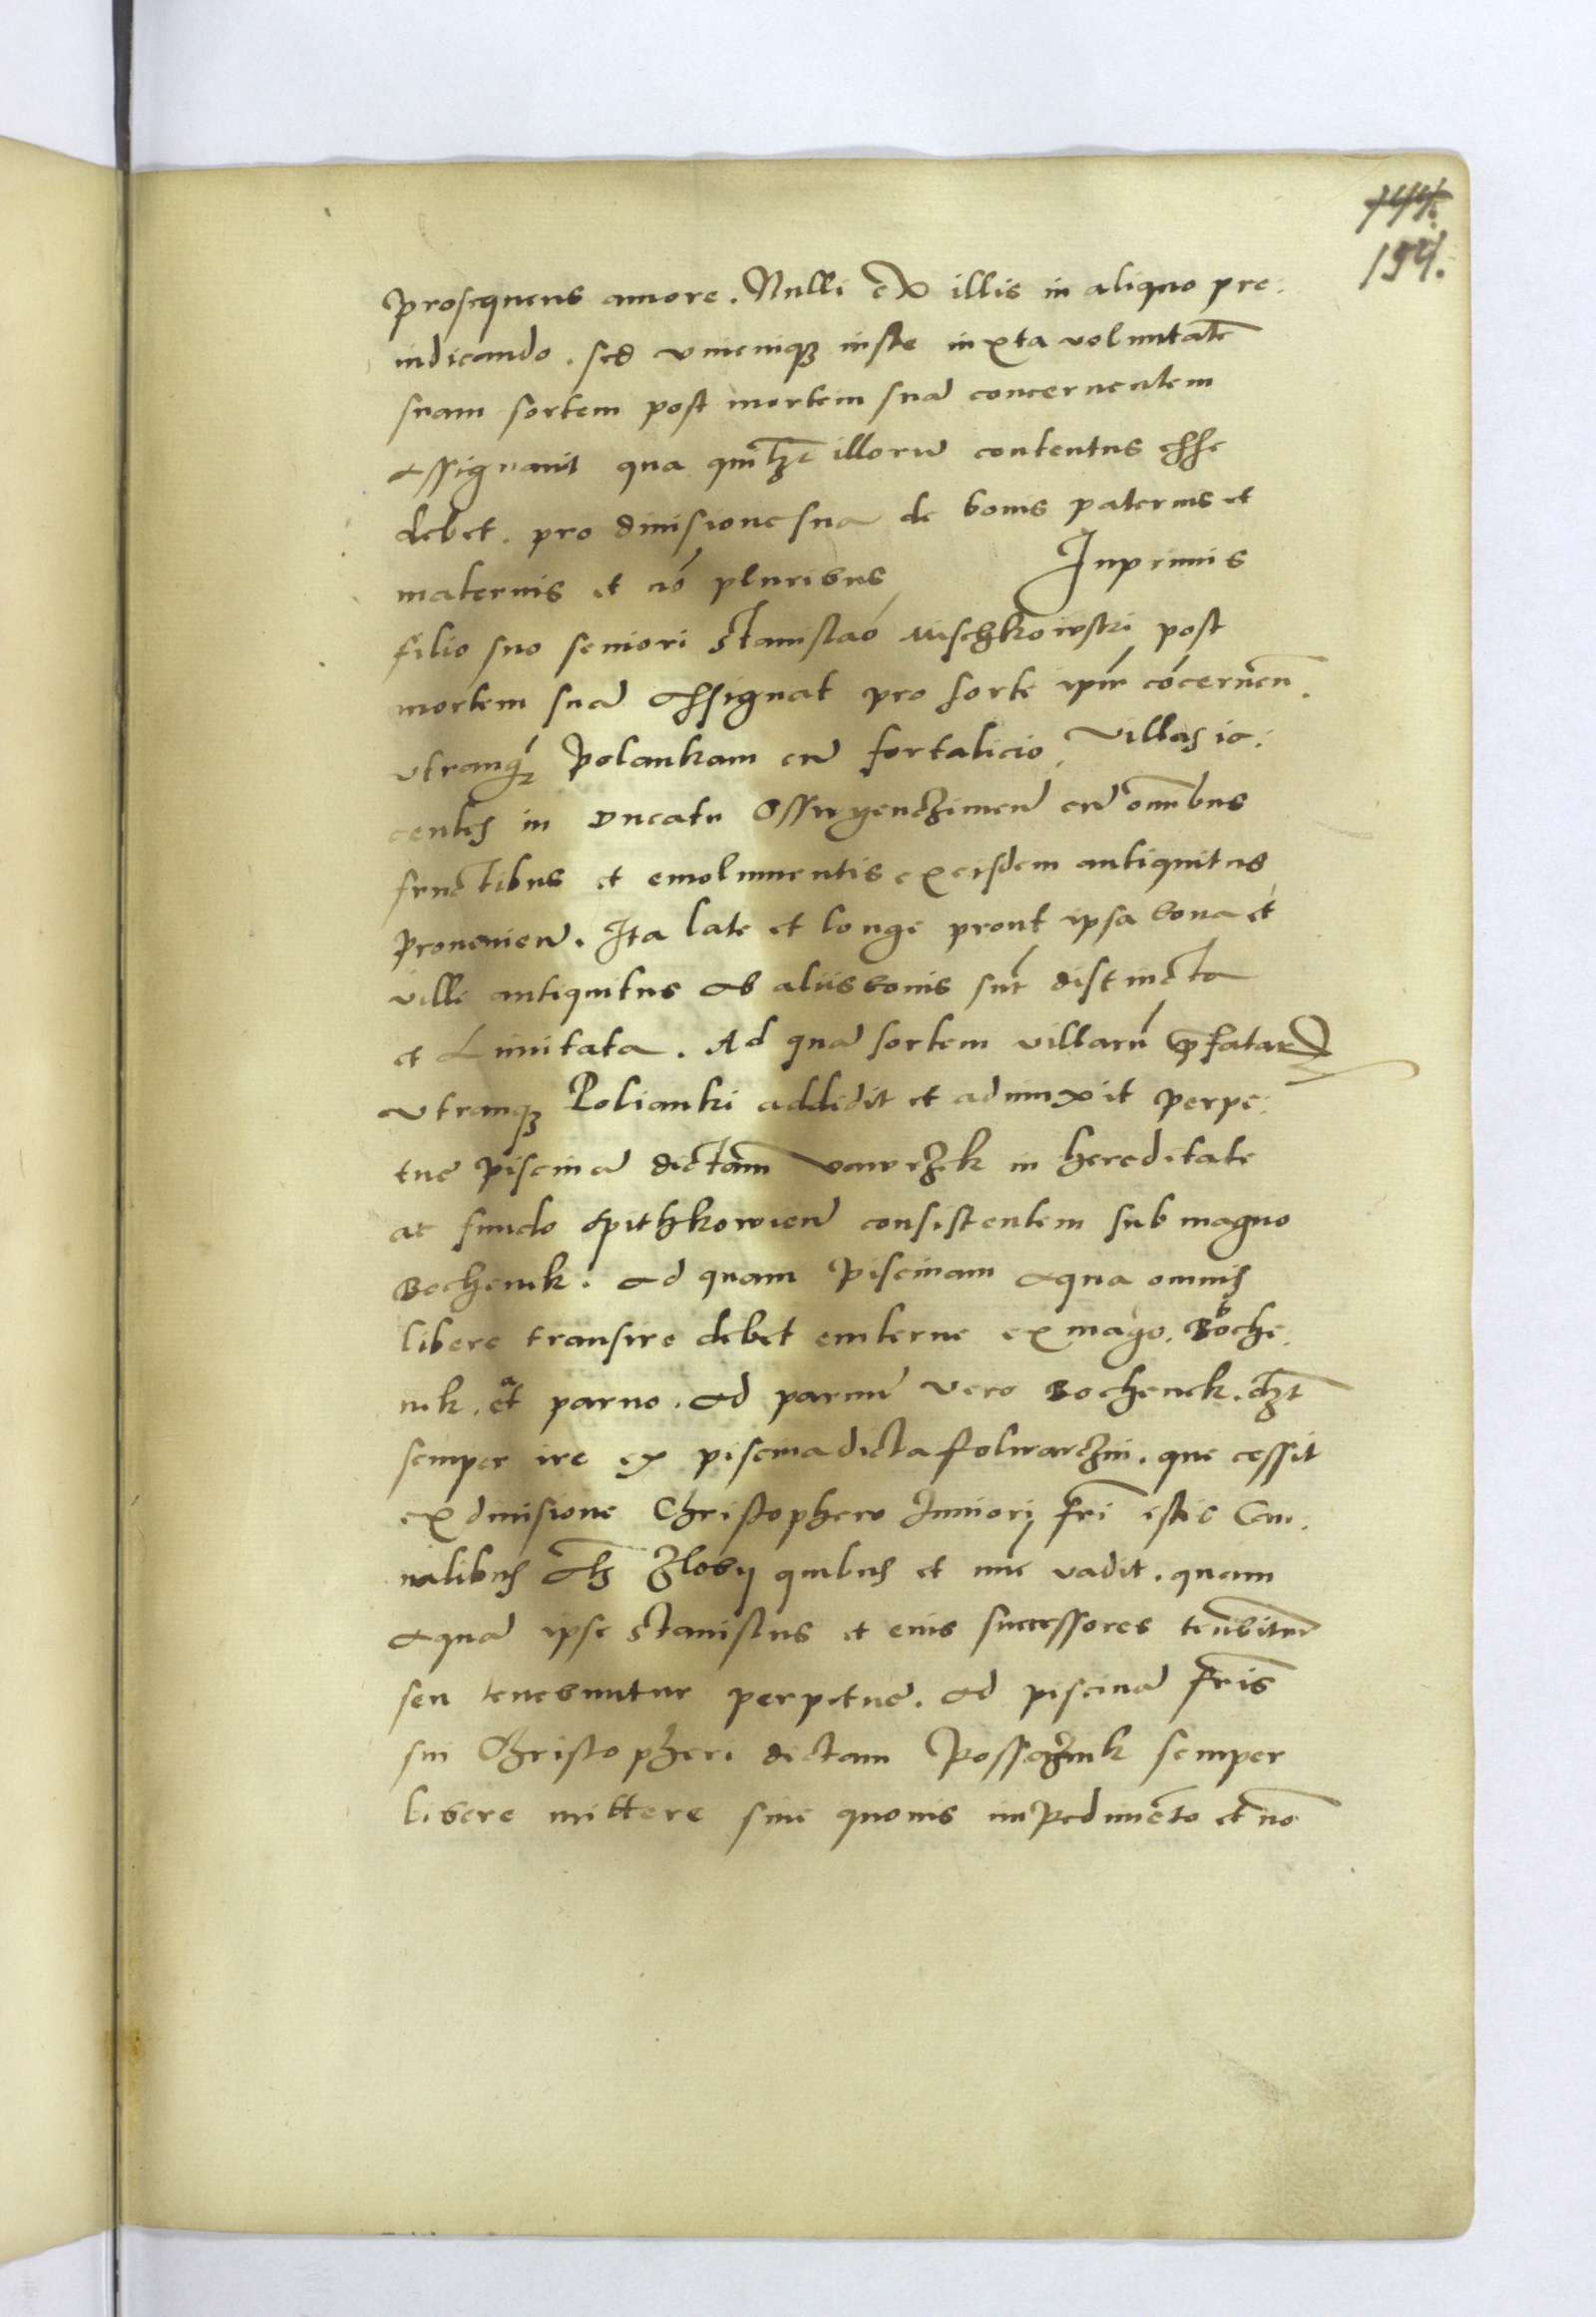 744.
194.
prosequens amore. Nulli ex illis in aliquo pre:
iudicando. sed vnicuiqz iuste iuxta voluntatē
suam sortem post mortem suā concernentem
assignauit qua quilibet illorū contentus esse
debet. pro diuisione sua de bonis paternis et
maternis et nō pluribus Inprimis
filio suo seniori Stanislao Mischkowski post
mortem suā assignat pro sorte ipm cōcerneñ.
vtranqz Polankam cū fortalicio, villas ia:
centes in Ducatu Osswyenczimeñ cū omībus
fructibus et emolumentis ex eisdem antiquitus
proueniеñ. Ita late et longe prout ipsa bona et
ville antiquitus ab aliis bonis sūt distincta
et Limitata. Ad quā sortem villarū prefatarum
vtranqz Polianki addidit et adiunxit perpe:
tue piscinā dictam vawrzik in hereditate
ac fundo Spithkowieñ consistentem sub magno
Bochenik. ad quam piscinam aqua omnis
libere transire debet eviterne ex māgo. Boche
nik. et paruo. ad paruū vero Bochenek. debet
semper ire ex piscina dicta folwarczni. que cessit
ex diuisione Christophero Iuniori fr̄i istis Can.
nalibus als Zloby quibus et nūc vadit. quam
aquā ipse Stanislaus et eius successores tenebitur
seu tenebuntur perpetue. ad piscinā fr̄is
sui Christopheri dictam Posseznik semper
libere mittere sine quouis impedimēto et nō